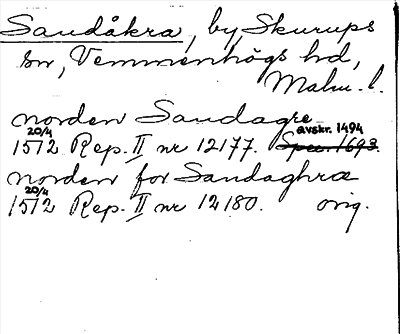 Sandåkra, by, Skurups
sn, Vemmenhögs hd,
Malm. l.
norden Sandagre
20/4 1512 Rep. II nr 12177. Spec. 1693. avskr. 1494
norden for Sandaghræ
20/4 1512 Rep. II nr 12180. orig.